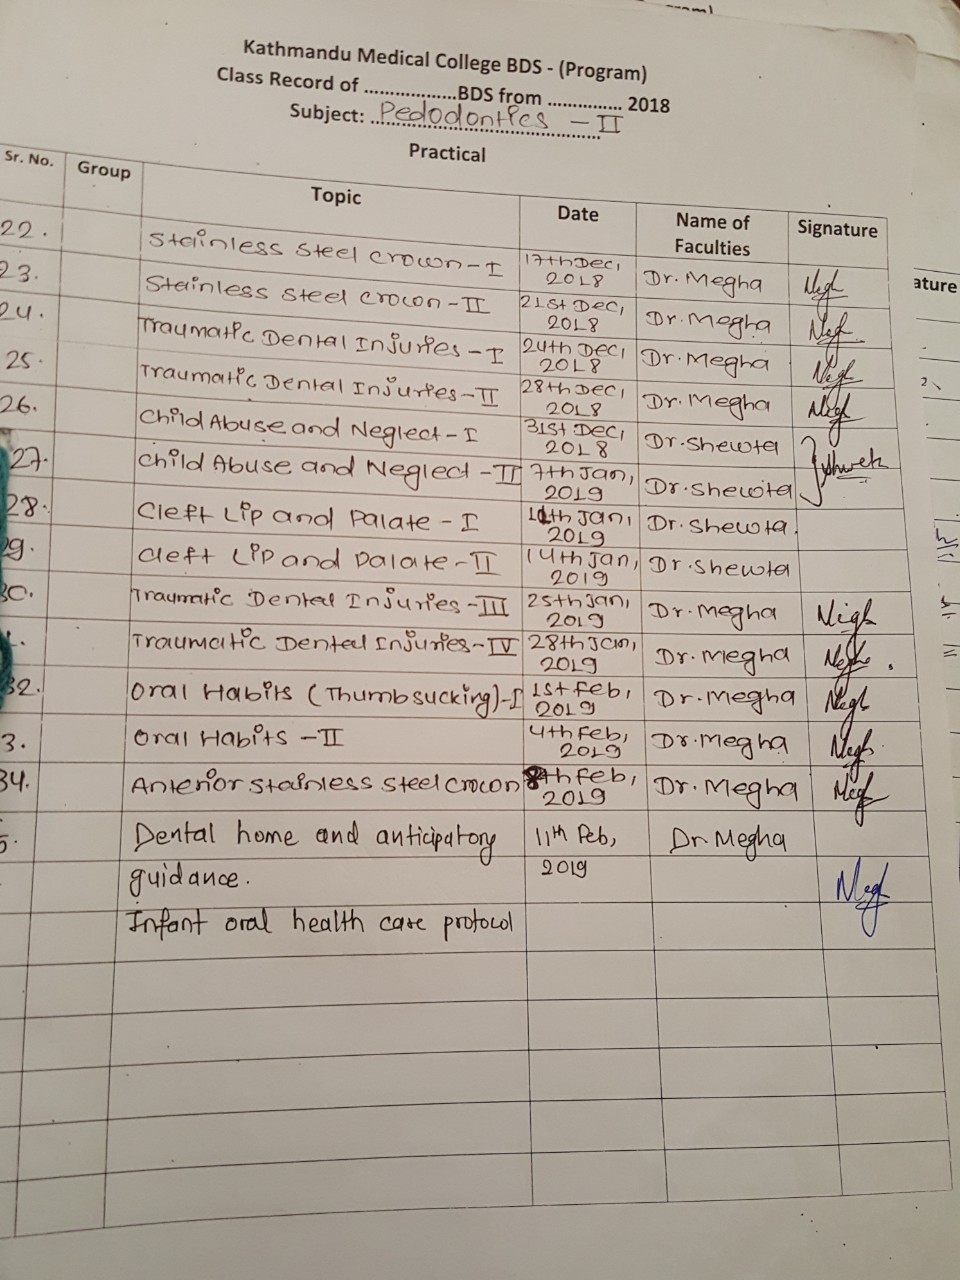 Kathmandu Medical College BDS - (Program)
Class Record of ..................BDS from ............... 2018
Subject: Pedodontics - II
Practical
Sr. No. Group Topic Date Name of Faculties Signature
22. Stainless Steel Crown - I 17th Dec, 2018 Dr. Megha
23. Stainless Steel Crown - II 21st Dec, 2018 Dr. Megha
24. Traumatic Dental Injuries - I 24th Dec, 2018 Dr. Megha
25. Traumatic Dental Injuries - II 28th Dec, 2018 Dr. Megha
26. Child Abuse and Neglect - I 31st Dec, 2018 Dr. Shewta
27. Child Abuse and Neglect - II 7th Jan, 2019 Dr. Shewta
28. Cleft Lip and Palate - I Jan, 2019 Dr. Shewta
9. Cleft Lip and Palate - II 14th Jan, 2019 Dr. Shewta
30. Traumatic Dental Injuries - III 25th Jan, 2019 Dr. Megha
Traumatic Dental Injuries - IV 28th Jan, 2019 Dr. Megha
32. Oral Habits (Thumbsucking) - I 1st Feb, 2019 Dr. Megha
3. Oral Habits - II 4th Feb, 2019 Dr. Megha
34. Anterior Stainless Steel Crown 8th Feb, 2019 Dr. Megha
5. Dental home and anticipatory 11th Feb, Dr. Megha
guidance. 2019
Infant oral health care protocol
ature